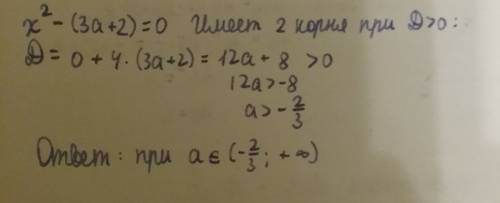 x² - (3a+2) = 0 Имеет 2 корня при D>0:
D = 0 + 4 · (3a+2) = 12a + 8 > 0
12a > -8
a > - 2/3
Ответ: при a ∈ (- 2/3; + ∞)